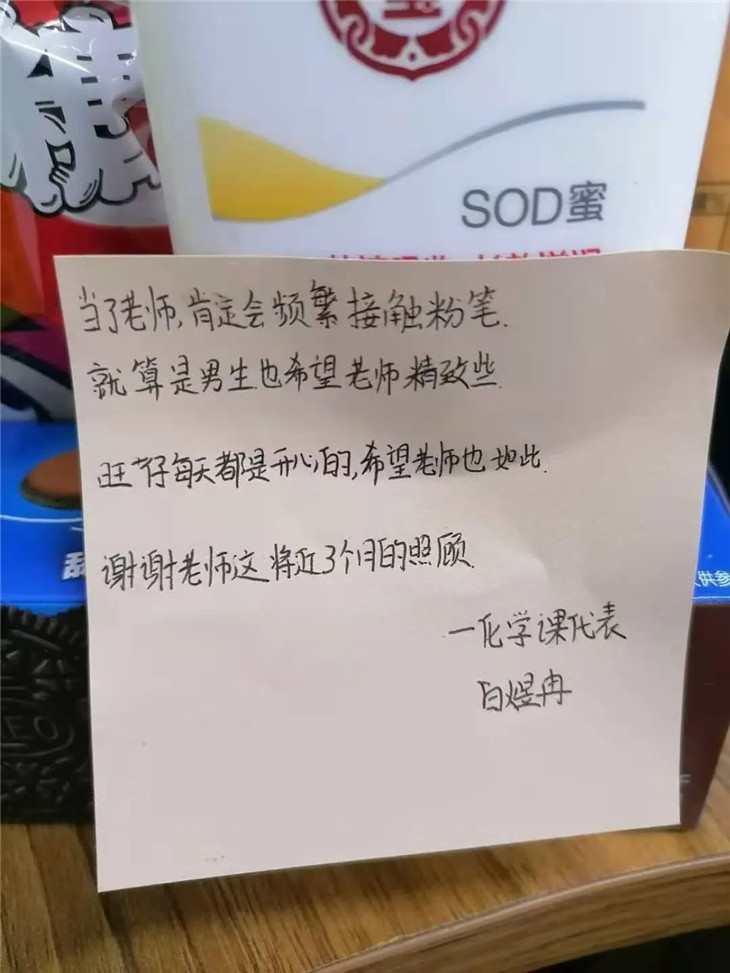 SOD蜜
当了老师,肯定会频繁接触粉笔.
就算是男生也希望老师精致些.
旺仔每天都是开心的,希望老师也如此.
谢谢老师这将近3个月的照顾.
一化学课代表
白煜冉
甜
供参